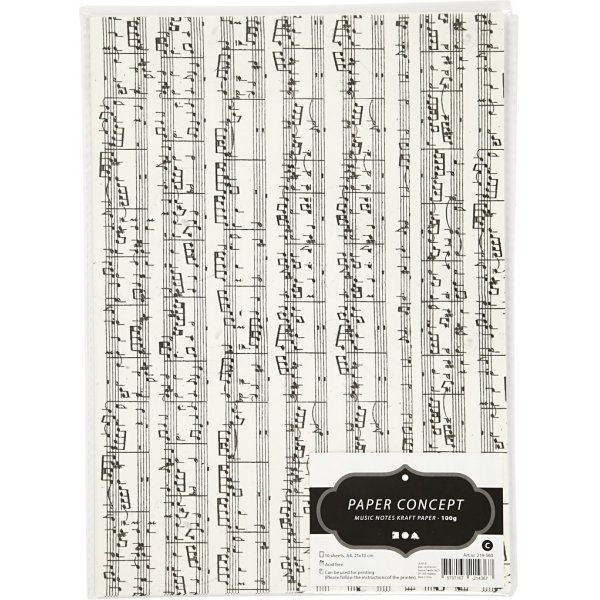 PAPER CONCEPT
MUSIC NOTES KRAFT PAPER - 100g
10 sheets, A4, 21x30 cm
Acid free
Can be used for printing
(Please follow the instructions of the printer)
C
Art.nr. 219 060
5707167 214367